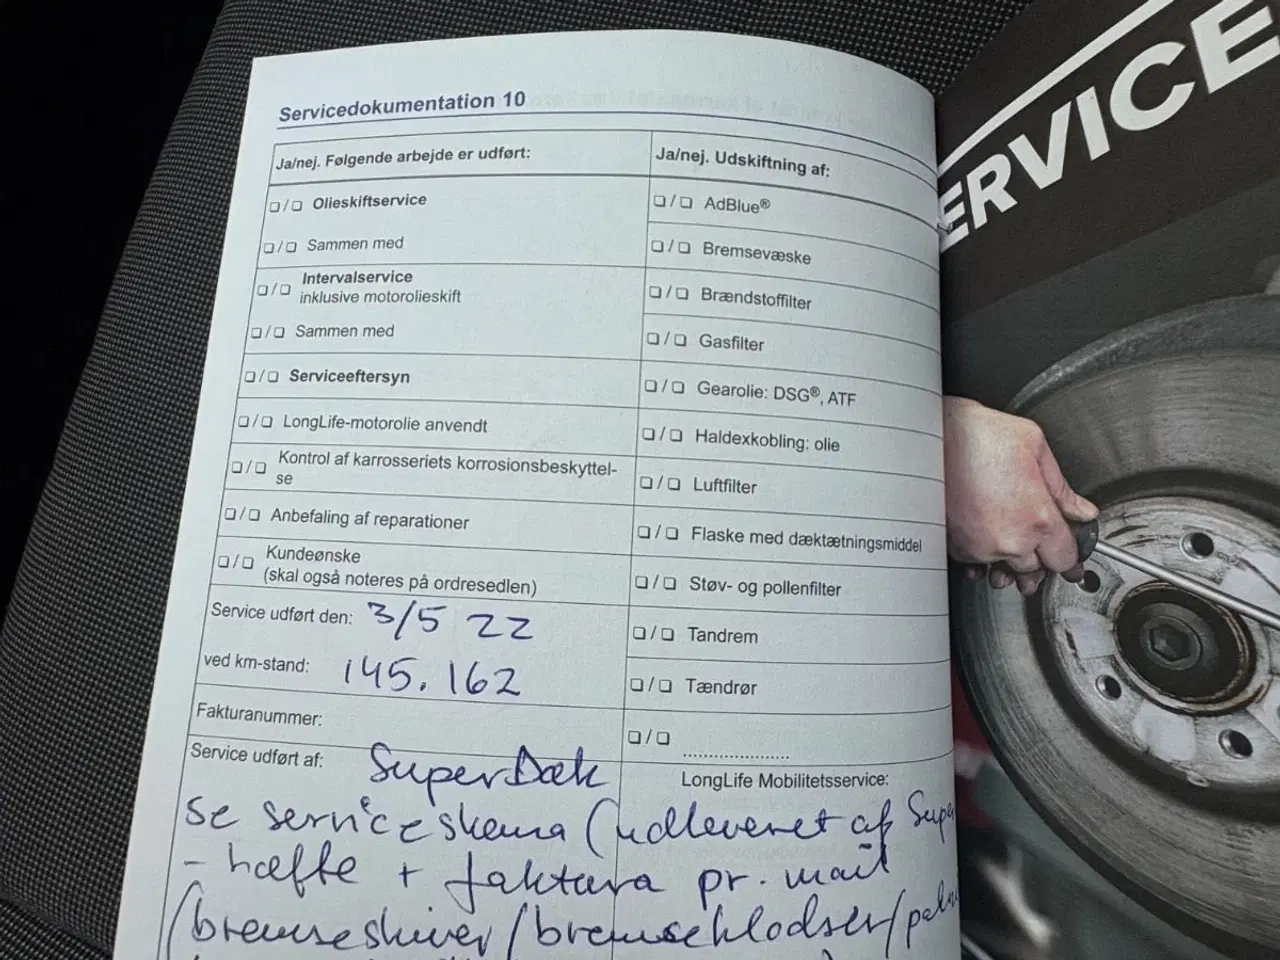 Servicedokumentation 10
Ja/nej. Følgende arbejde er udført:
❏ / ❏ Olieskiftservice
❏ / ❏ Sammen med
❏ / ❏ Intervalservice
inklusive motorolieskift
❏ / ❏ Sammen med
❏ / ❏ Serviceeftersyn
❏ / ❏ LongLife-motorolie anvendt
❏ / ❏ Kontrol af karrosseriets korrosionsbeskyttel-
se
❏ / ❏ Anbefaling af reparationer
❏ / ❏ Kundeønske
(skal også noteres på ordresedlen)
Service udført den: 3/5 22
ved km-stand: 145.162
Fakturanummer:
Service udført af: SuperDæk
Ja/nej. Udskiftning af:
❏ / ❏ AdBlue®
❏ / ❏ Bremsevæske
❏ / ❏ Brændstoffilter
❏ / ❏ Gasfilter
❏ / ❏ Gearolie: DSG®, ATF
❏ / ❏ Haldexkobling: olie
❏ / ❏ Luftfilter
❏ / ❏ Flaske med dæktætningsmiddel
❏ / ❏ Støv- og pollenfilter
❏ / ❏ Tandrem
❏ / ❏ Tændrør
❏ / ❏ .....................
LongLife Mobilitetsservice:
se serviceskema (udleveret af Supe
- hæfte + faktura pr. mail
(bremseskiver/bremseklodser/
ERVICE